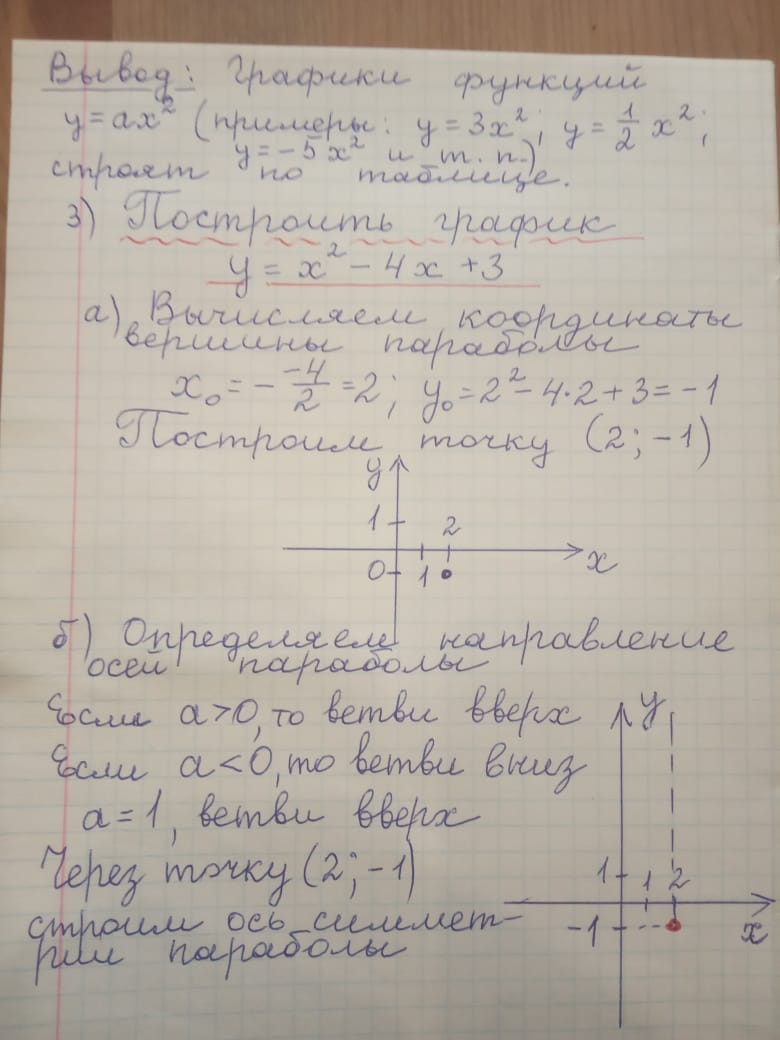 Вывод: Графики функций
y=ax² (примеры: y=3x²; y=1/2 x²;
y=-5x² и т.п.)
строят по таблице.
3) Построить график
y=x²-4x+3
а) Вычисляем координаты
вершины параболы
x₀=-(-4/2)=2; y₀=2²-4·2+3=-1
Построим точку (2;-1)
y
1 2
0 1 x
б) Определяем направление
осей параболы
Если a>0, то ветви вверх
Если a<0, то ветви вниз
a=1, ветви вверх
Через точку (2;-1)
строим ось симмет-
рии параболы
y
1 1 2
-1 x